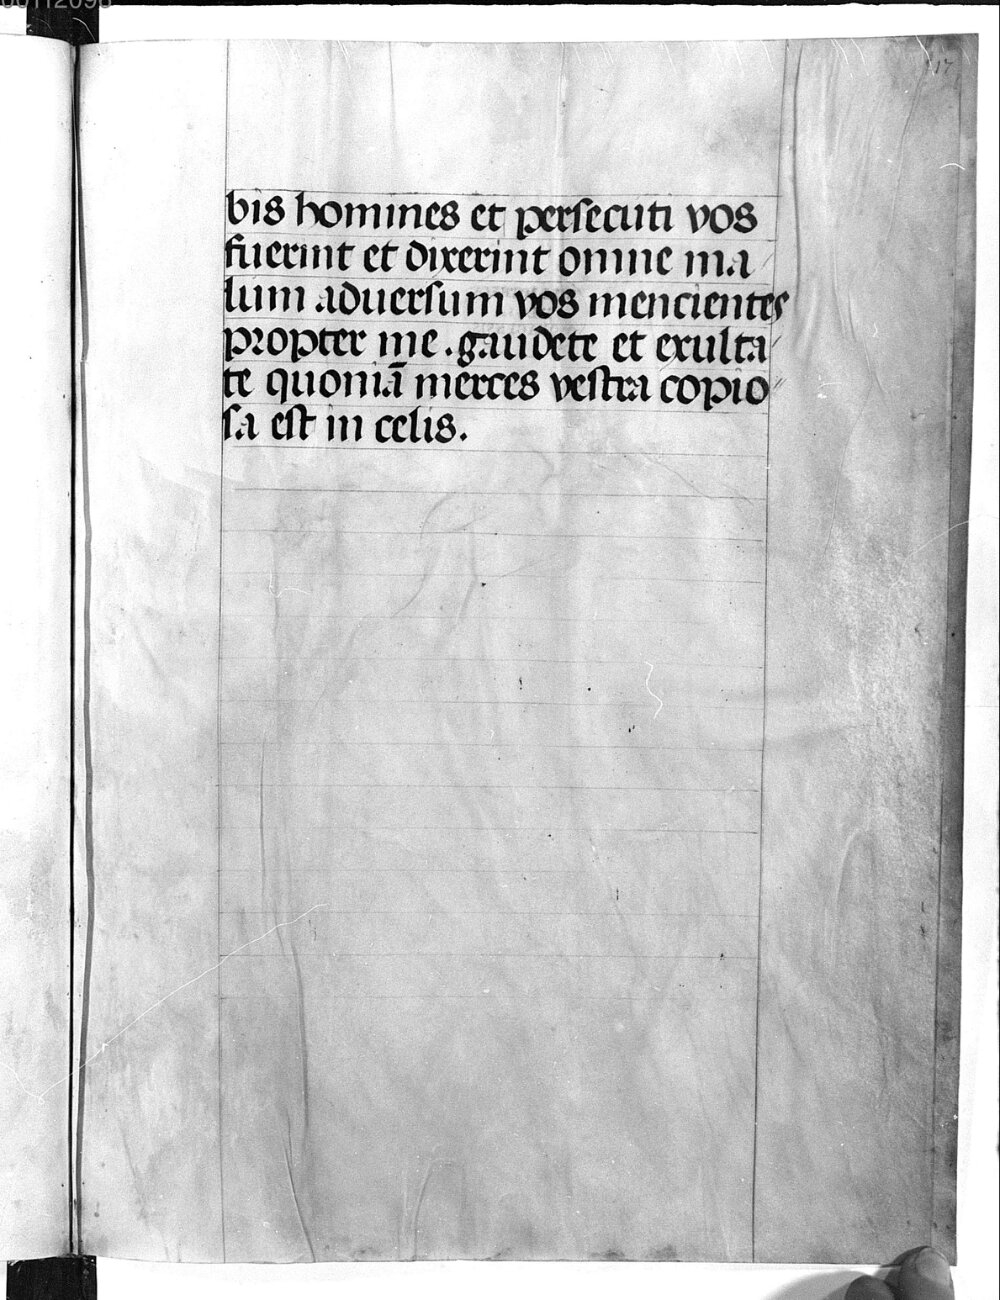 17
bis homines et persecuti vos
fuerint et dixerint omne ma
lum aduersum vos mencientes
propter me. gaudete et exulta
te quoniā merces vestra copio
sa est in celis.